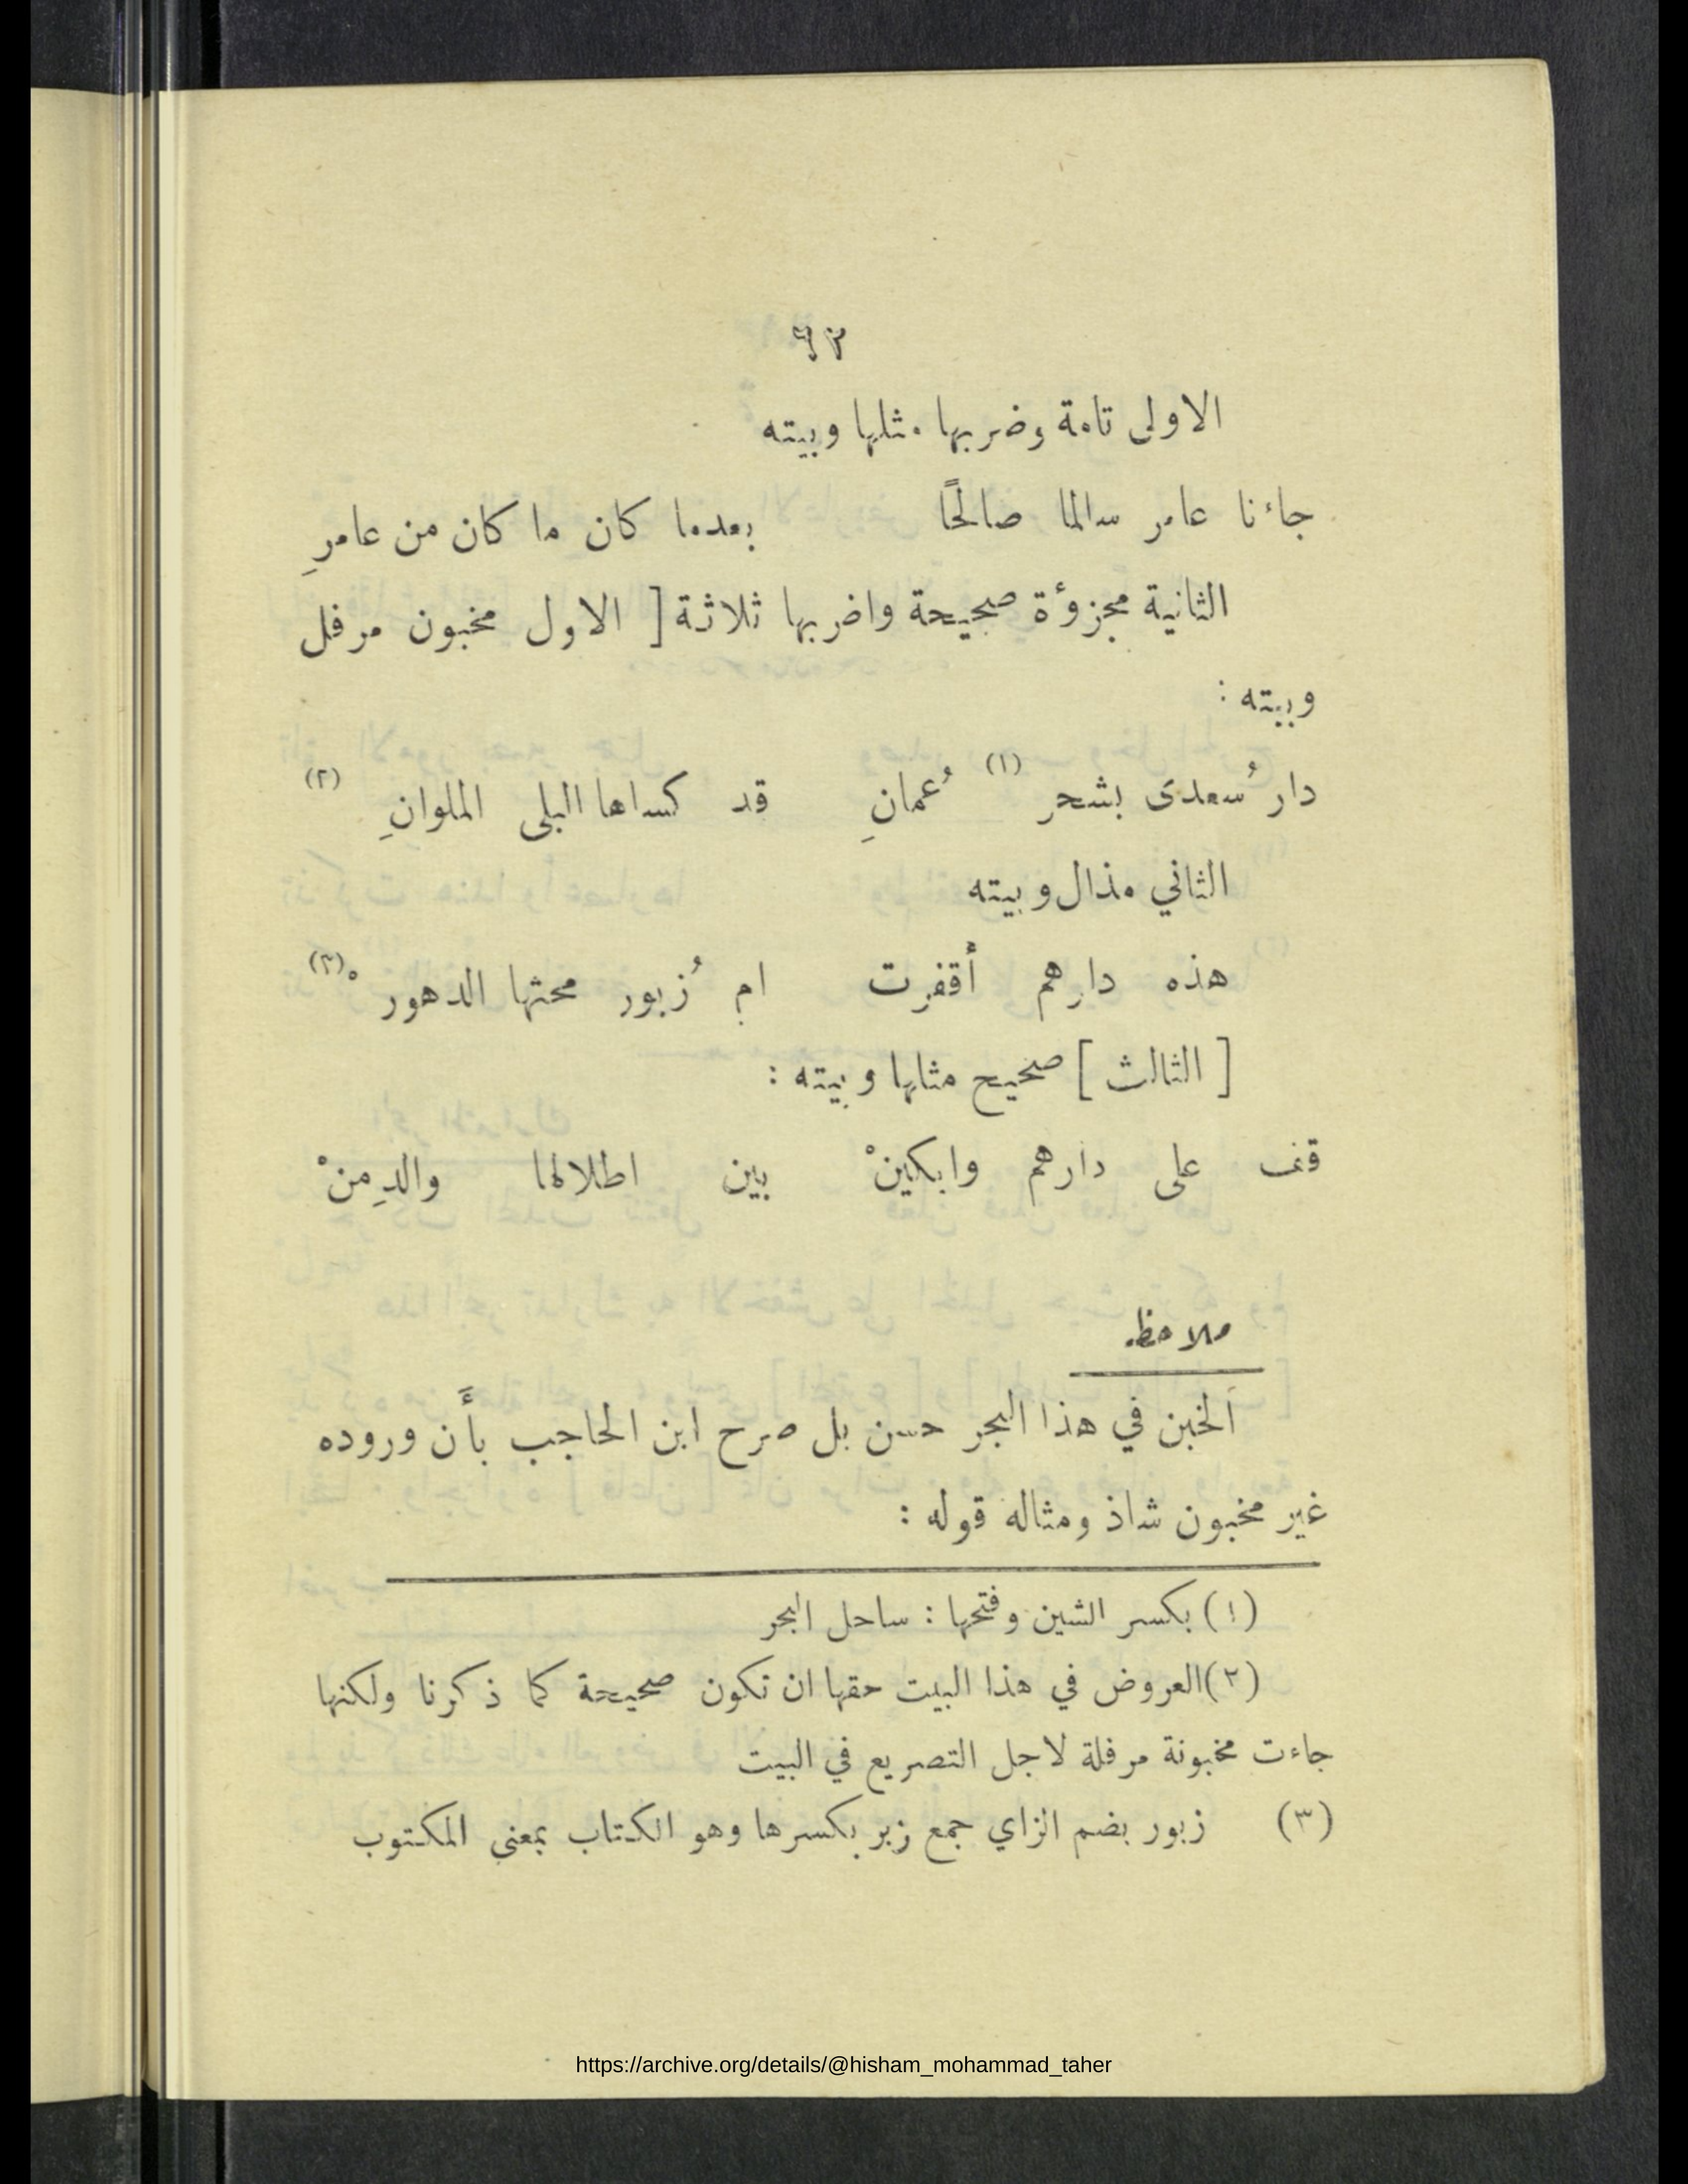 ٩٣
الاولى تامة وضربها مثلها وبيته
جاءنا عامر سالما صالحًا بعدما كان ما كان من عامرِ
الثانية مجزوءة صحيحة واضربها ثلاثة [ الاول مخبون مرفل
وبيته :
دار سُعدى بشحر (١) عُمانِ قد كساها البلى الملوانِ (٢)
الثاني مذال وبيته
هذه دارهم أقفرت ام زُبور محتها الدهورْ (٣)
[ الثالث ] صحيح مثلها وبيته :
قف على دارهم وابكينْ بين اطلالها والدِمنْ
ملاحظه
اَلخبن في هذا البحر حسن بل صرح ابن الحاجب بأَن وروده
غير مخبون شاذ ومثاله قوله :
(١) بكسر الشين وفتحها : ساحل البحر
(٢) العروض في هذا البيت حقها ان تكون صحيحة كما ذكرنا ولكنها
جاءت مخبونة مرفلة لاجل التصريع في البيت
(٣) زبور بضم الزاي جمع زبر بكسرها وهو الكتاب بمعنى المكتوب
https://archive.org/details/@hisham_mohammad_taher